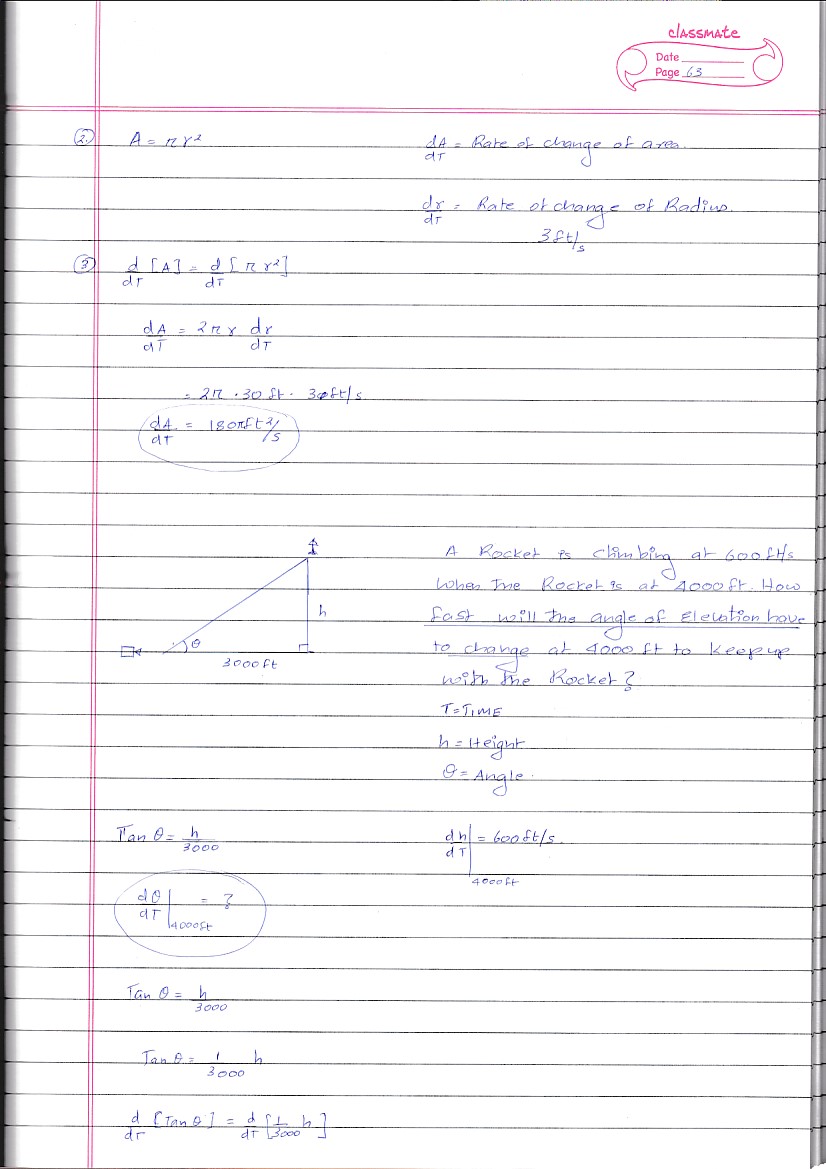 classmate
Date
Page 63
② A = πr²
dA/dT = Rate of change of area.
dr/dT = Rate of change of Radius.
3ft/s
③ d/dT [A] = d/dT [πr²]
dA/dT = 2πr dr/dT
= 2π · 30ft · 3ft/s
dA/dT = 180πft²/s
A Rocket is climbing at 600ft/s
when the Rocket is at 4000ft. How
fast will the angle of Elevation have
to change at 4000ft to keep up
with the Rocket?
h
θ
3000ft
T=TIME
h = Height
θ = Angle.
Tan θ = h/3000
dh/dT | 4000ft = 600ft/s.
dθ/dT | 4000ft = ?
Tan θ = h/3000
Tan θ = 1/3000 h
d/dT [Tan θ] = d/dT [1/3000 h]